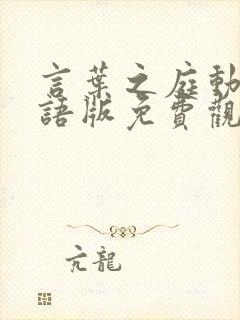 言葉之庭動
語版免費觀
亢龍